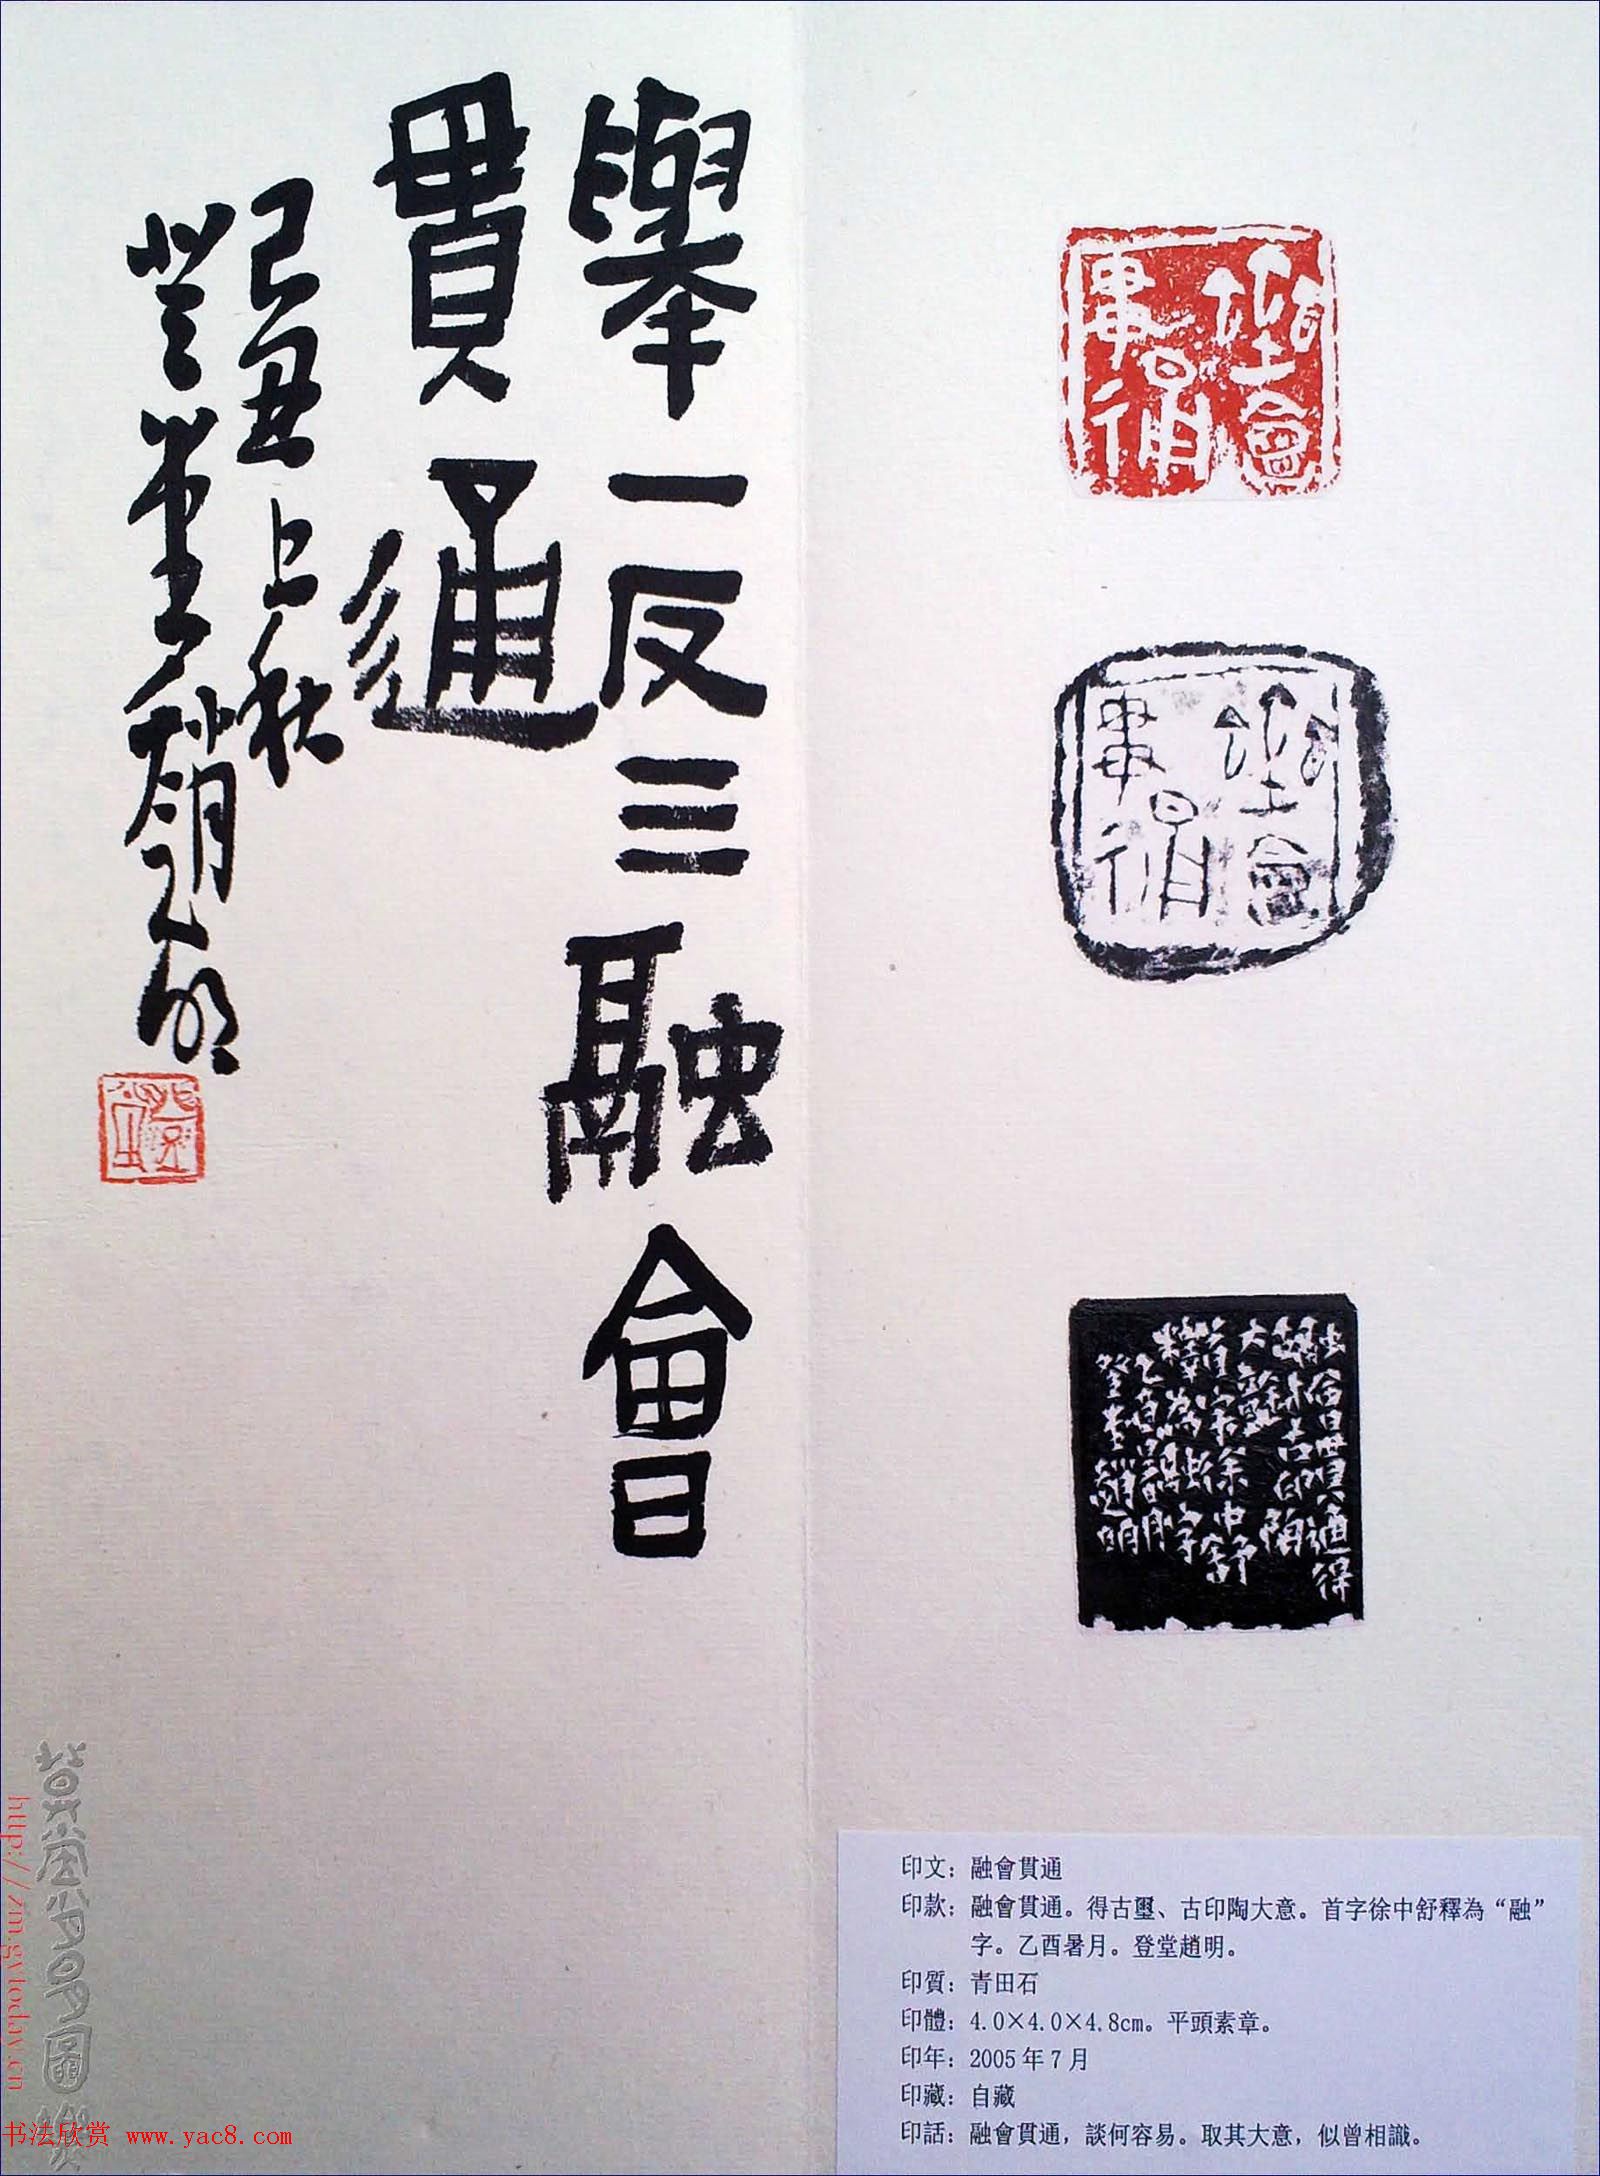 舉一反三融會
貫通
己丑上秋
登堂趙明
融會貫通
融會貫通得
古璽古印陶
大意
首字徐中舒
釋為融字
乙酉暑月
登堂趙明
印文：融會貫通
印款：融會貫通。得古璽、古印陶大意。首字徐中舒釋為“融”
字。乙酉暑月。登堂趙明。
印質：青田石
印體：4.0×4.0×4.8cm。平頭素章。
印年：2005年7月
印藏：自藏
印話：融會貫通，談何容易。取其大意，似曾相識。
http://zm.gytoday.cn
书法欣赏 www.yac8.com